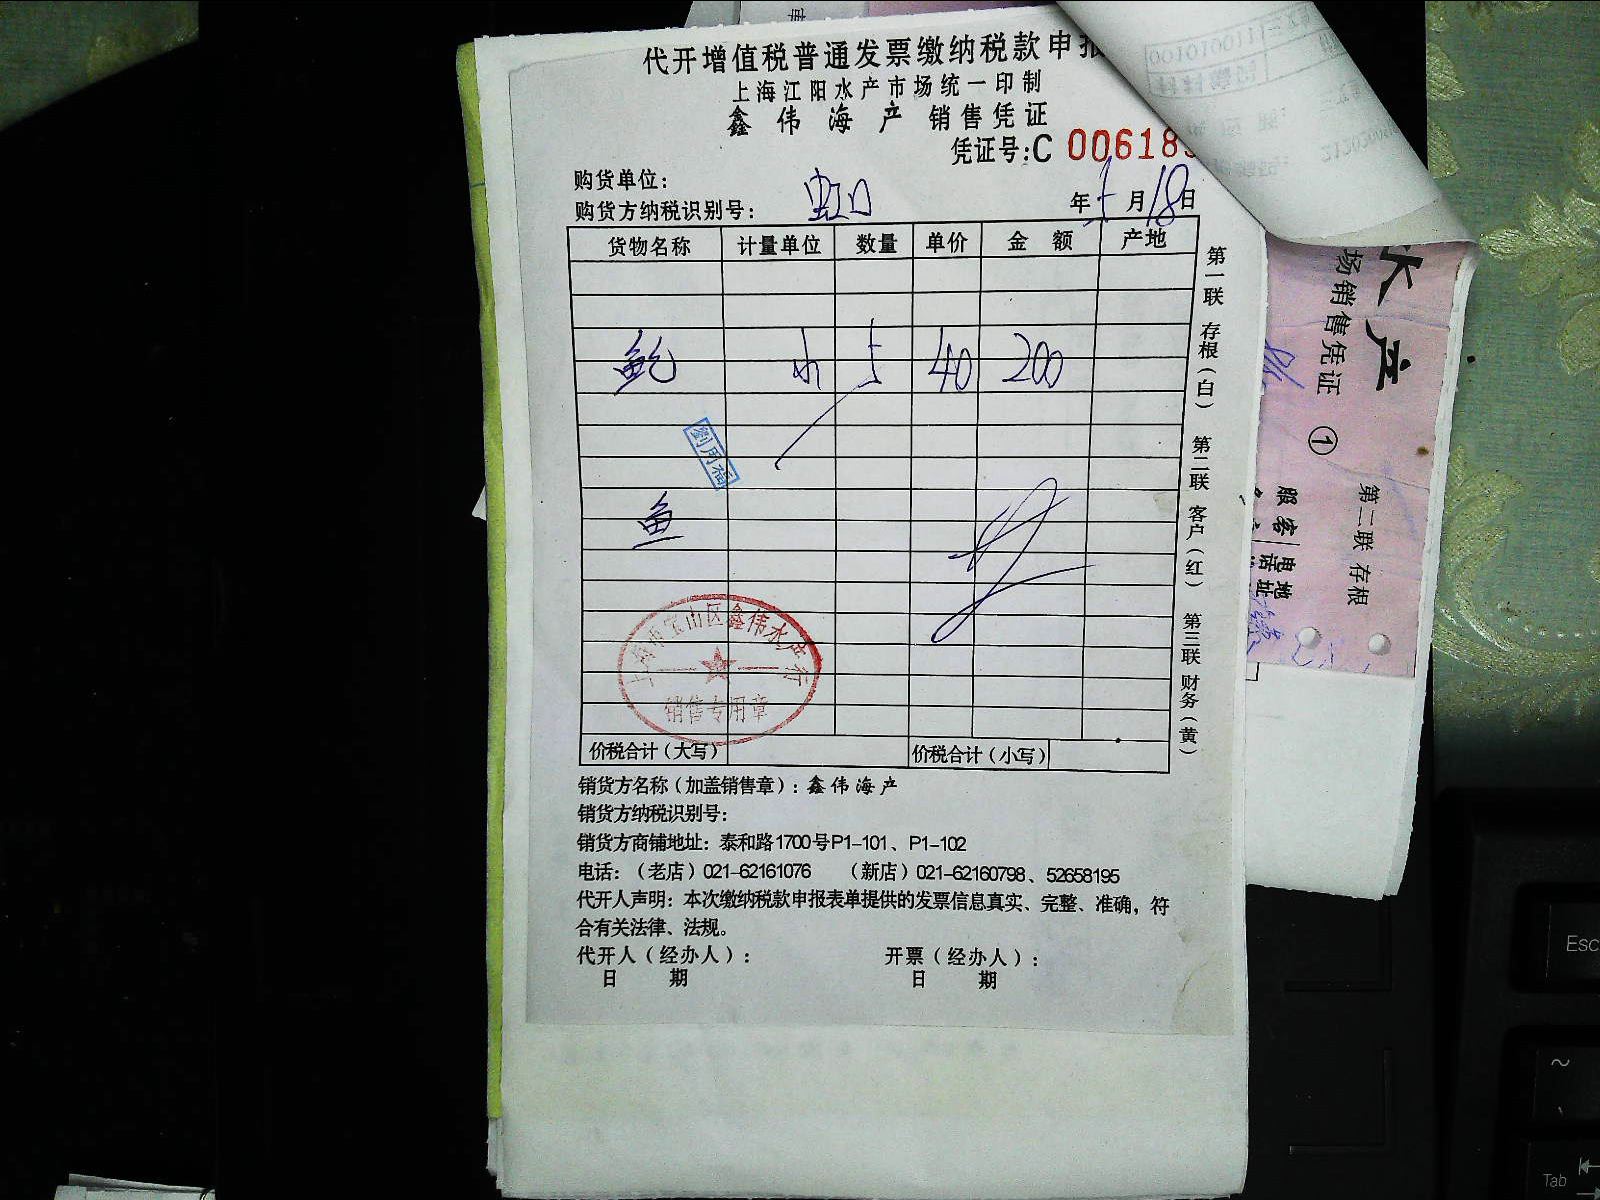 代开增值税普通发票缴纳税款申报
上海江阳水产市场统一印制
鑫伟海产 销售凭证
凭证号:C 006185
购货单位:
购货方纳税识别号: 虹口 年 月18日
货物名称 计量单位 数量 单价 金额 产地
鲍 40 200
劉用福
鱼
上海市宝山区鑫伟水产行
销售专用章
价税合计(大写) 价税合计(小写)
第一联 存根(白) 第二联 客户(红) 第三联 财务(黄)
销货方名称(加盖销售章):鑫伟海产
销货方纳税识别号:
销货方商铺地址:泰和路1700号P1-101、P1-102
电话:(老店)021-62161076 (新店)021-62160798、52658195
代开人声明:本次缴纳税款申报表单提供的发票信息真实、完整、准确,符
合有关法律、法规。
代开人(经办人): 开票(经办人):
日期 日期
水产
场销售凭证 ①
第二联 存根
服客
电话
地址
Esc
~
Tab